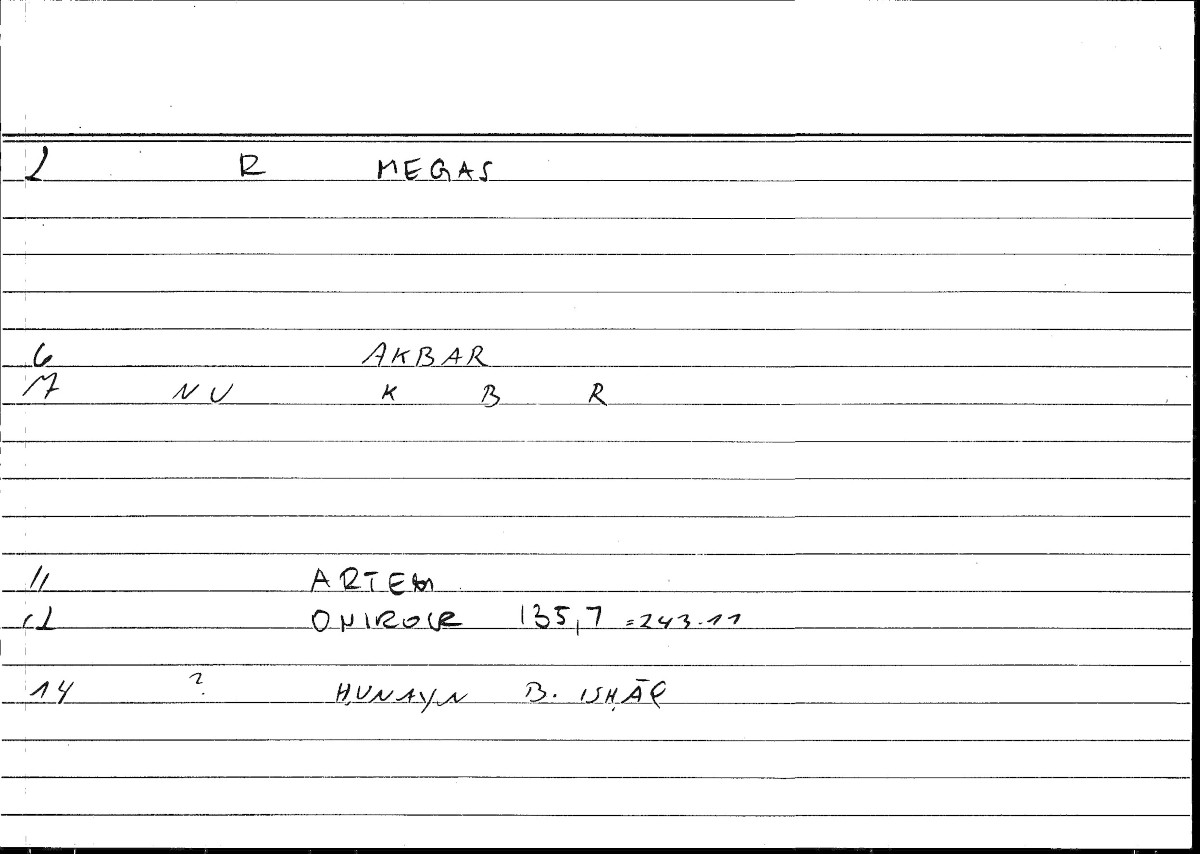 2 R MEGAS
6 AKBAR
7 NU K B R
11 ARTEM
12 ONIROCR 135,7 =243.11
14 ? ḤUNAYN B. ISḤĀQ